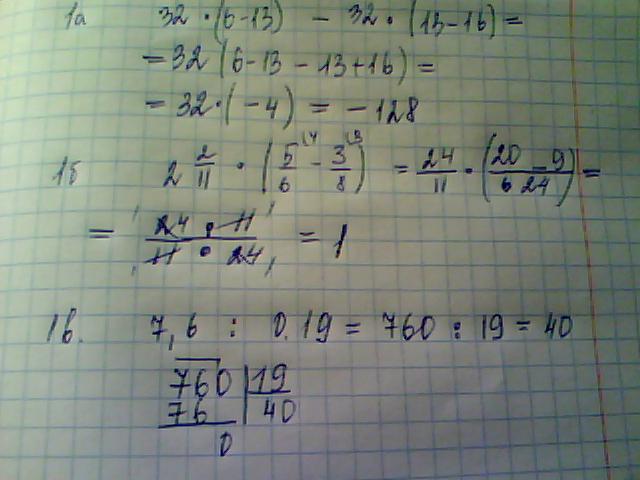 1а 32 · (6-13) - 32 · (13-16) =
= 32 (6-13 - 13+16) =
= 32 · (-4) = -128
1б 2 2/11 · (5/6 \4 - 3/8 \3) = 24/11 · (20 - 9 / 24) =
= 24 · 11 / 11 · 24 = 1
1в. 7,6 : 0.19 = 760 : 19 = 40
760 | 19
76 40
0